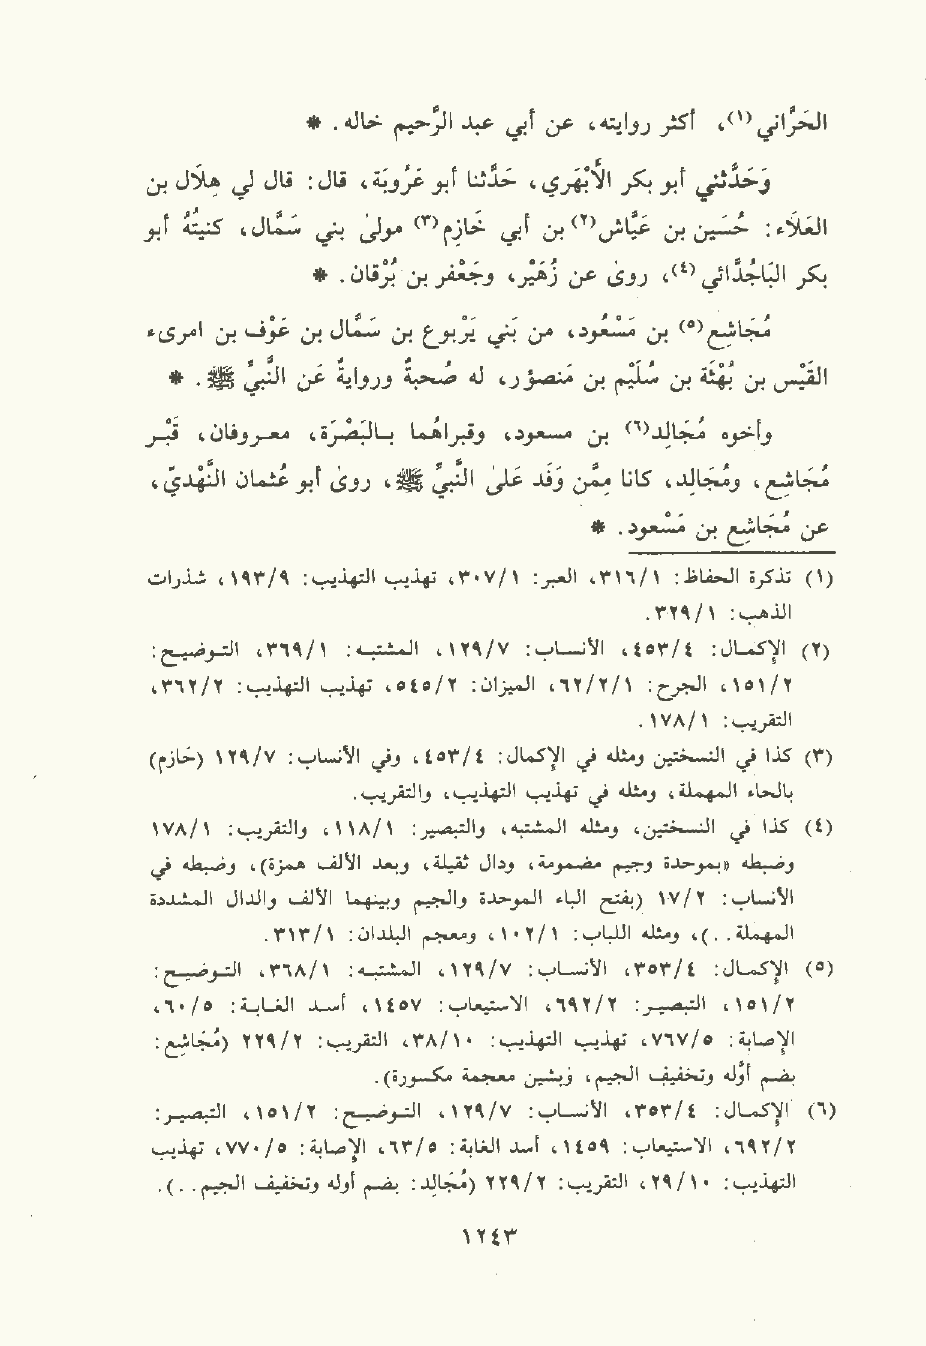 الحَرَّاني(١)، أكثر روايته، عن أبي عبد الرَّحيم خاله. *
وَحَدَّثني أبو بكر الأَبْهَري، حَدَّثنا أبو عَرُوبَة، قال: قال لي هِلَال بن
العَلَاء: حُسَين بن عَيَّاش(٢) بن أبي خَازِم(٣) مولىٰ بني سَمَّال، كنيتُهُ أبو
بكر البَاجُدَّائي(٤)، روىٰ عن زُهَيْر، وجَعْفر بن بُرْقان. *
مُجَاشِع(٥) بن مَسْعُود، من بَني يَرْبوع بن سَمَّال بن عَوْف بن امرىء
القَيْس بن بُهْثَة بن سُلَيْم بن مَنصور، له صُحبةٌ وروايةٌ عَن النَّبيِّ ﷺ. *
وأخوه مُجَالِد(٦) بن مسعود، وقبراهُما بالبَصْرَة، معروفان، قَبْر
مُجَاشِع، ومُجَالِد، كانا مِمَّن وَفَد عَلىٰ النَّبيِّ ﷺ، روىٰ أبو عُثمان النَّهْديّ،
عن مُجَاشِع بن مَسْعود. *
(١) تذكرة الحفاظ: ٣١٦/١، العبر: ٣٠٧/١، تهذيب التهذيب: ١٩٣/٩، شذرات
الذهب: ٣٢٩/١.
(٢) الإكمال: ٤٥٣/٤، الأنساب: ١٢٩/٧، المشتبه: ٣٦٩/١، التوضيح:
١٥١/٢، الجرح: ٦٢/٢/١، الميزان: ٥٤٥/٢، تهذيب التهذيب: ٣٦٢/٢،
التقريب: ١٧٨/١.
(٣) كذا في النسختين ومثله في الإكمال: ٤٥٣/٤، وفي الأنساب: ١٢٩/٧ (حَازم)
بالحاء المهملة، ومثله في تهذيب التهذيب، والتقريب.
(٤) كذا في النسختين، ومثله المشتبه، والتبصير: ١١٨/١، والتقريب: ١٧٨/١
وضبطه «بموحدة وجيم مضمومة، ودال ثقيلة، وبعد الألف همزة)، وضبطه في
الأنساب: ١٧/٢ (بفتح الباء الموحدة والجيم وبينهما الألف والدال المشددة
المهملة..)، ومثله اللباب: ١٠٢/١، ومعجم البلدان: ٣١٣/١.
(٥) الإكمال: ٣٥٣/٤، الأنساب: ١٢٩/٧، المشتبه: ٣٦٨/١، التوضيح:
١٥١/٢، التبصير: ٦٩٢/٢، الاستيعاب: ١٤٥٧، أسد الغابة: ٦٠/٥،
الإصابة: ٧٦٧/٥، تهذيب التهذيب: ٣٨/١٠، التقريب: ٢٢٩/٢ (مُجَاشِع:
بضم أوَّله وتخفيف الجيم، وبشين معجمة مكسورة).
(٦) الإكمال: ٣٥٣/٤، الأنساب: ١٢٩/٧، التوضيح: ١٥١/٢، التبصير:
٦٩٢/٢، الاستيعاب: ١٤٥٩، أسد الغابة: ٦٣/٥، الإصابة: ٧٧٠/٥، تهذيب
التهذيب: ٢٩/١٠، التقريب: ٢٢٩/٢ (مُجَالِد: بضم أوله وتخفيف الجيم..).
١٢٤٣